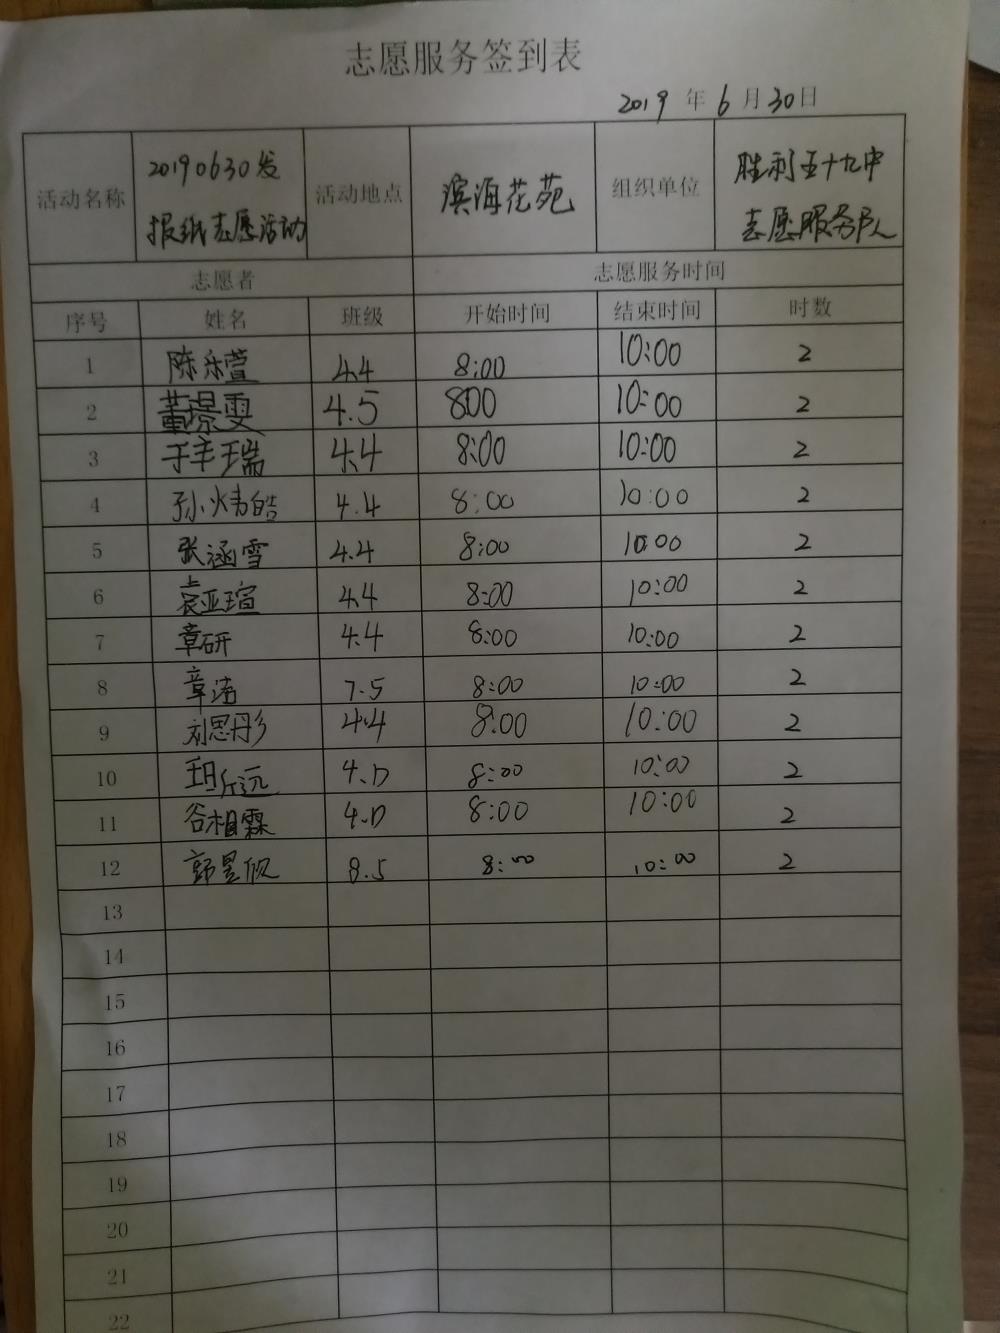 志愿服务签到表
2019 年 6 月 30 日
活动名称 20190630发报纸志愿活动 活动地点 滨海花苑 组织单位 胜利五十九中志愿服务队
志愿者 志愿服务时间
序号 姓名 班级 开始时间 结束时间 时数
1 陈乐萱 4.4 8:00 10:00 2
2 董璟雯 4.5 800 10:00 2
3 于丰瑞 4.4 8:00 10:00 2
4 孙炜皓 4.4 8:00 10:00 2
5 张涵雪 4.4 8:00 10:00 2
6 袁亚瑄 4.4 8:00 10:00 2
7 章研 4.4 8:00 10:00 2
8 章涛 7.5 8:00 10:00 2
9 刘思彤 4.4 8:00 10:00 2
10 4.D 8:00 10:00 2
11 谷相霖 4.D 8:00 10:00 2
12 郭昱欣 8.5 8:00 10:00 2
13
14
15
16
17
18
19
20
21
22